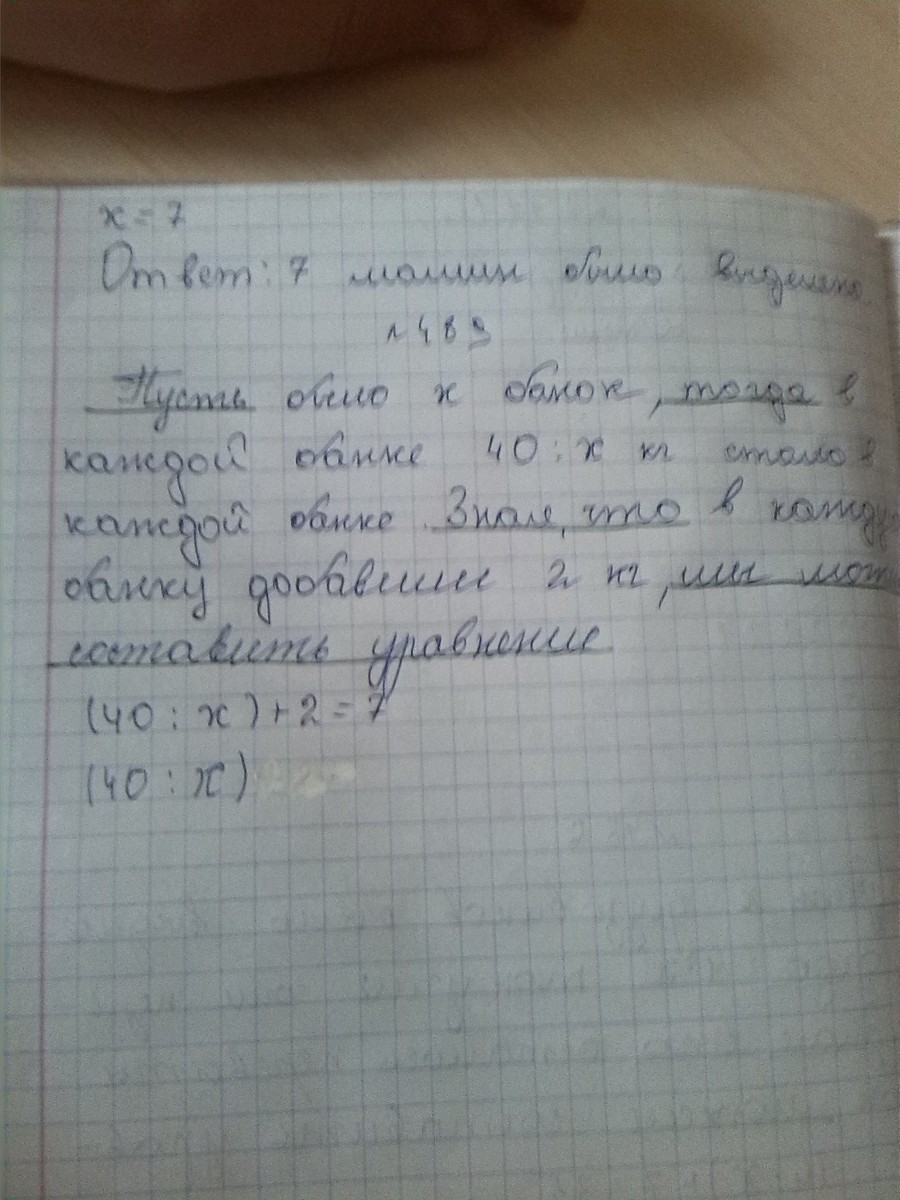 x = 7
Ответ: 7 машин было выделено.
№ 489
Пусть было x банок, тогда в
каждой банке 40 : x кг стало в
каждой банке. Зная, что в кажду
банку добавили 2 кг, мы мож
составить уравнение
(40 : x) + 2 = 7
(40 : x)